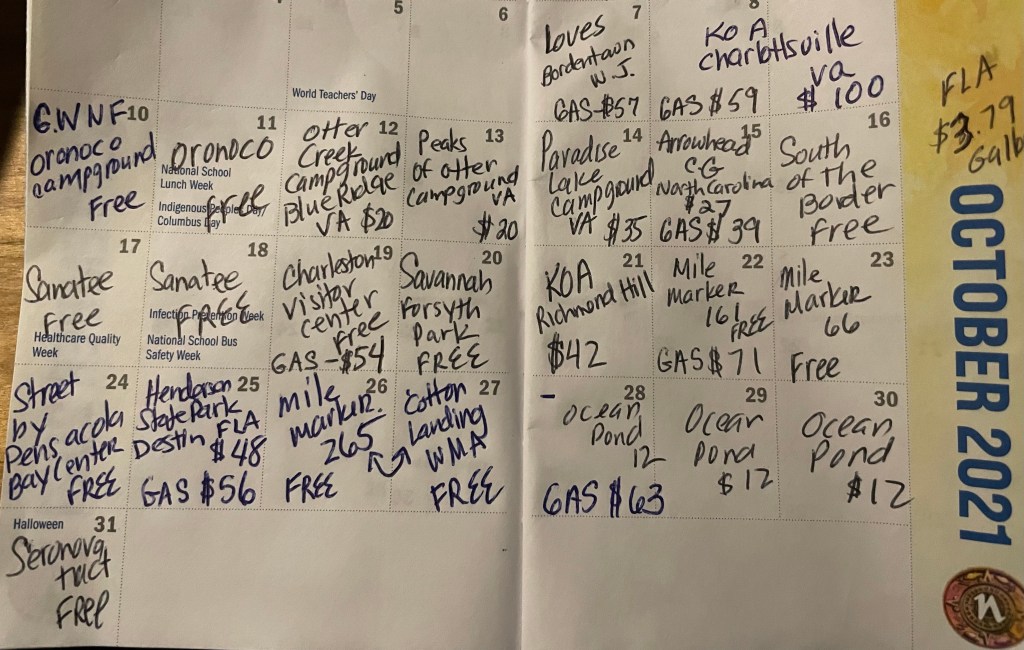 5
World Teachers' Day
6
7
Loves
Bordentown
N.J.
GAS-$57
8
KOA
Charlottsville
va
$100
GAS $59
FLA
$3.79
Galb
10
G.W.N.F
oronoco
campground
Free
11
oronoco
National School
Lunch Week
Indigenous Peoples' Day/
Columbus Day
free
12
otter
Creek
Campground
Blue Ridge
VA $20
13
Peaks
of otter
Campground
VA
$20
14
Paradise
Lake
Campground
VA $35
15
Arrowhead
CG
North Carolina
$27
GAS $39
16
South
of the
Border
free
17
Sanatee
Free
Healthcare Quality
Week
18
Sanatee
FREE
Infection Prevention Week
National School Bus
Safety Week
19
Charleston
visitor
center
Free
GAS-$54
20
Savannah
Forsyth
Park
FREE
21
KOA
Richmond Hill
$42
22
Mile
Marker
161
FREE
GAS $71
23
Mile
Marker
66
Free
24
Street
by
Pensacola
Bay Center
FREE
25
Henderson
State Park
Destin FLA
$48
GAS $56
26
mile
marker
265
FREE
27
Cotton
Landing
WMA
FREE
28
Ocean
Pond
12
GAS $63
29
Ocean
Pond
$12
30
Ocean
Pond
$12
Halloween 31
Free
OCTOBER 2021
n